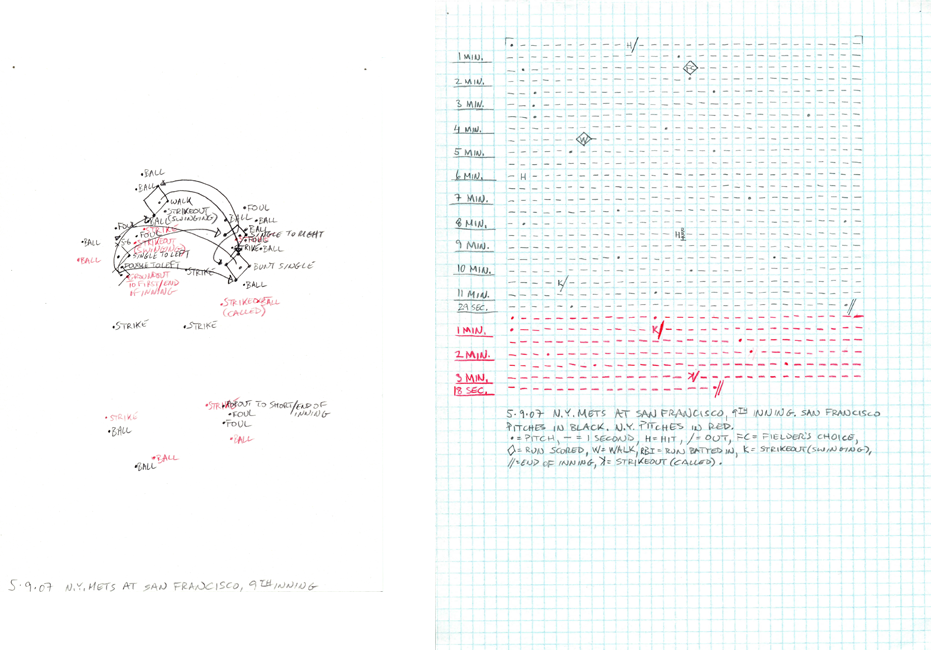 BALL
BALL
WALK
STRIKEOUT
(SWINGING)
FOUL
BALL
BALL
BALL
SINGLE TO RIGHT
FOUL
STRIKE
BALL
FOUL
BALL
STRIKE
FOUL
STRIKEOUT
(SWINGING)
BALL
BALL
SINGLE TO LEFT
DOUBLE TO LEFT
STRIKE
BUNT SINGLE
GROUNDOUT
TO FIRST/END
OF INNING
BALL
STRIKEOUT
(CALLED)
BALL
STRIKE
STRIKE
STRIKE
OUT TO SHORT/END OF
INNING
STRIKE
FOUL
FOUL
BALL
BALL
BALL
BALL
5.9.07 N.Y. METS AT SAN FRANCISCO, 9TH INNING
H/
1 MIN.
FC
2 MIN.
3 MIN.
4 MIN.
W
5 MIN.
6 MIN. H
7 MIN.
8 MIN.
H RBI
9 MIN.
10 MIN.
K/
11 MIN.
29 SEC. //
1 MIN. K/
2 MIN.
3 MIN.
18 SEC. //
5.9.07 N.Y. METS AT SAN FRANCISCO, 9TH INNING. SAN FRANCISCO
PITCHES IN BLACK. N.Y. PITCHES IN RED.
• = PITCH, — = 1 SECOND, H = HIT, / = OUT, FC = FIELDER'S CHOICE,
◇ = RUN SCORED, W = WALK, RBI = RUN BATTED IN, K = STRIKEOUT (SWINGING),
// = END OF INNING, ꓘ = STRIKEOUT (CALLED).